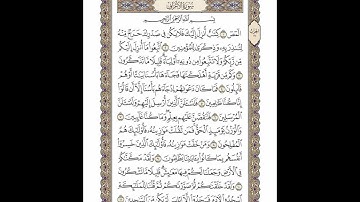 سورة الأعراف
بسم الله الرحمن الرحيم
المص ۝ كتاب أنزل إليك فلا يكن في صدرك حرج منه
لتنذر به وذكرى للمؤمنين ۝ اتبعوا ما أنزل إليكم
من ربكم ولا تتبعوا من دونه أولياء قليلا ما تذكرون
۝ وكم من قرية أهلكناها فجاءها بأسنا بياتا أو هم
قائلون ۝ فما كان دعواهم إذ جاءهم بأسنا إلا أن قالوا
إنا كنا ظالمين ۝ فلنسئلن الذين أرسل إليهم ولنسئلن
المرسلين ۝ فلنقصن عليهم بعلم وما كنا غائبين
۝ والوزن يومئذ الحق فمن ثقلت موازينه فأولئك هم
المفلحون ۝ ومن خفت موازينه فأولئك الذين خسروا
أنفسهم بما كانوا بآياتنا يظلمون ۝ ولقد مكناكم
في الأرض وجعلنا لكم فيها معايش قليلا ما تشكرون
۝ ولقد خلقناكم ثم صورناكم ثم قلنا للملائكة
اسجدوا لآدم فسجدوا إلا إبليس لم يكن من الساجدين